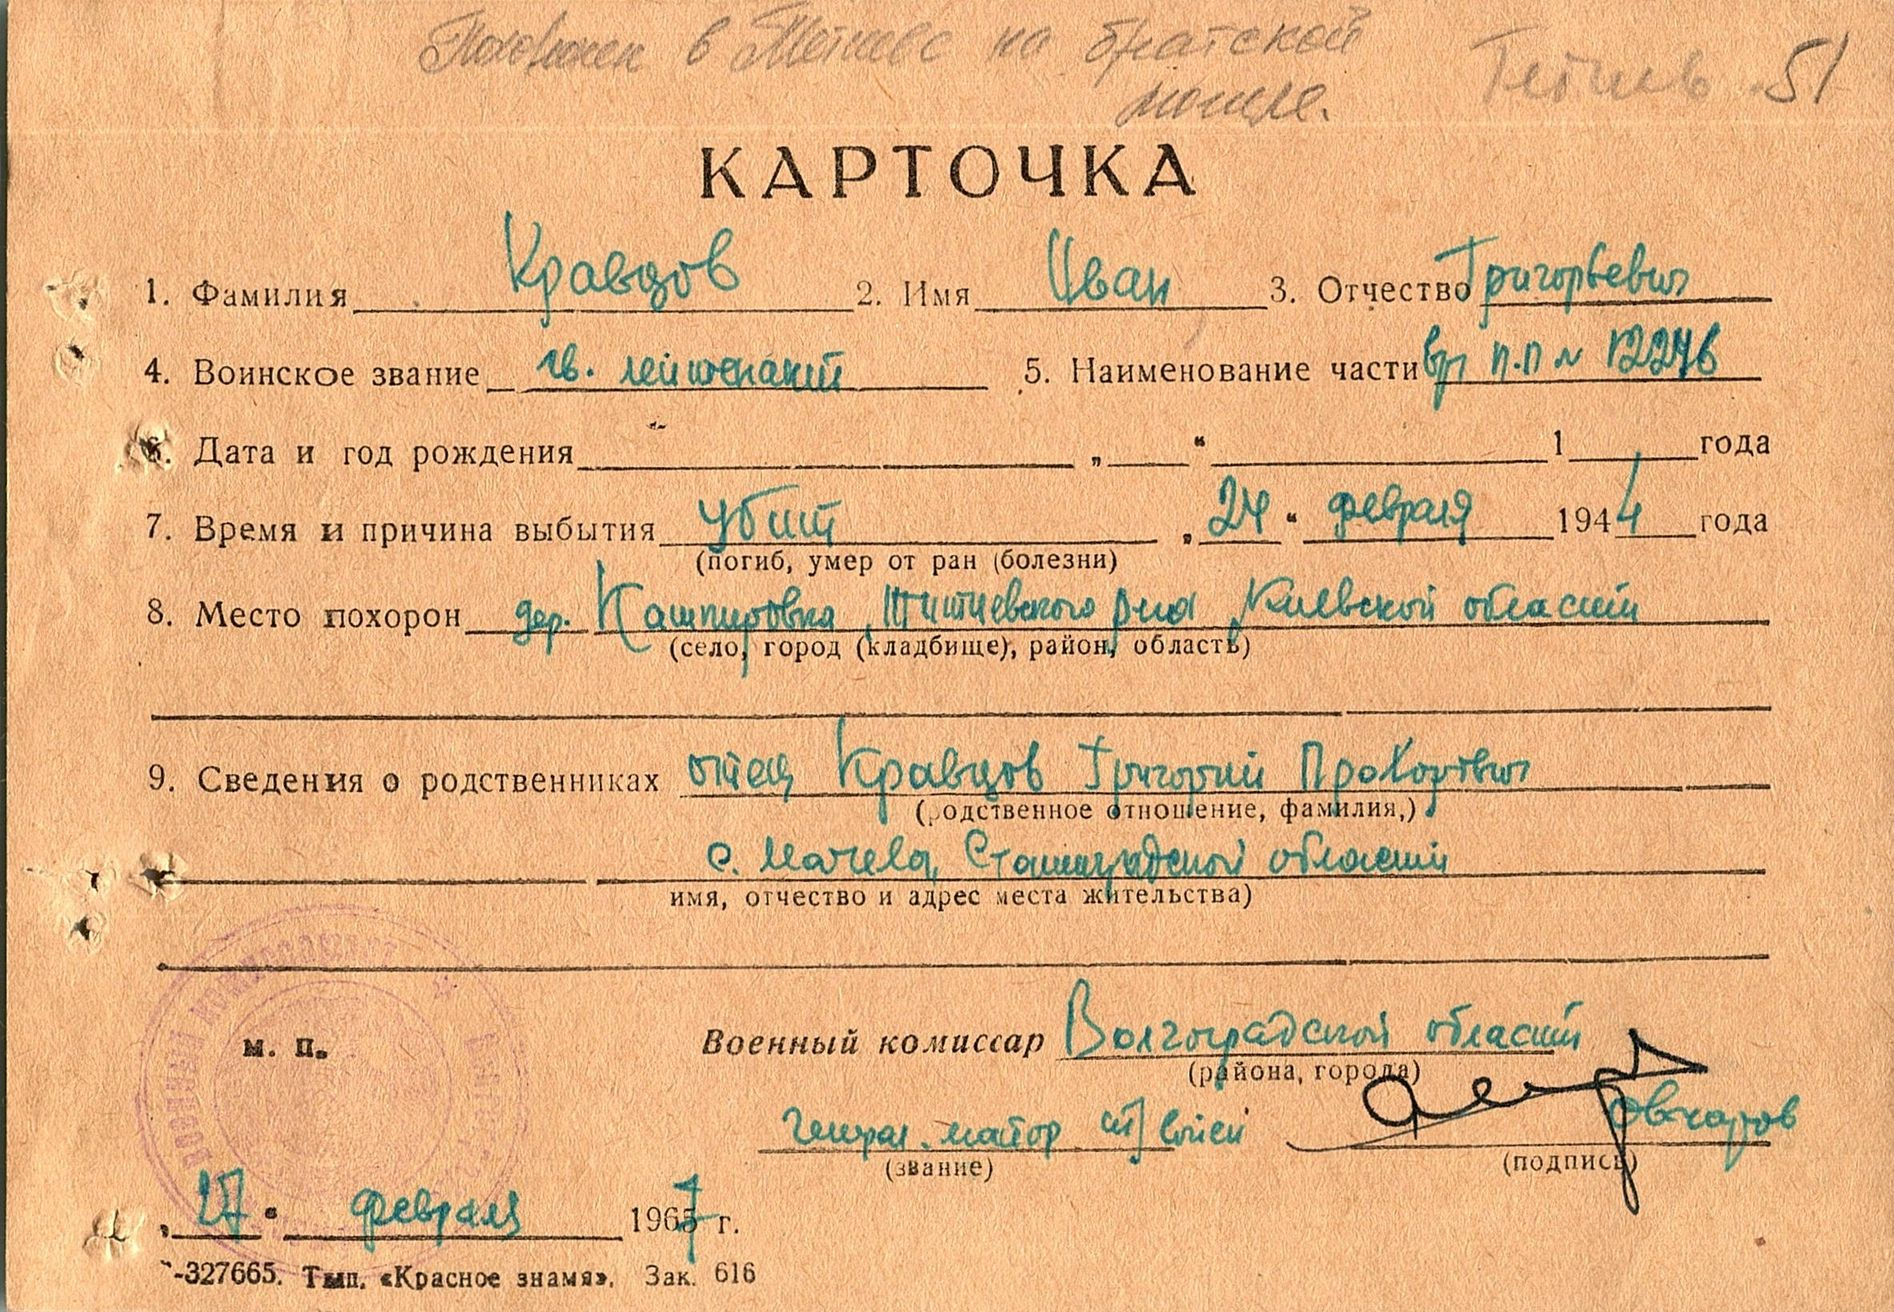 Похоронен в Тетиеве на братской Тетиев 51
могиле.
КАРТОЧКА
1. Фамилия Кравцов 2. Имя Иван 3. Отчество Григорьевич
4. Воинское звание гв. лейтенант 5. Наименование части в/ч п.п № 12274б
6. Дата и год рождения „ “ 1 года
7. Время и причина выбытия убит „24“ февраля 1944 года
(погиб, умер от ран (болезни)
8. Место похорон дер. Кашперовка, Тетиевского р-на Киевской области
(село, город (кладбище), район, область)
9. Сведения о родственниках отец Кравцов Григорий Прохорович
(родственное отношение, фамилия,)
с. Мачеха, Сталинградской области
имя, отчество и адрес места жительства)
м. п. Военный комиссар Волгоградской области
(района, города)
генерал-майор Овчаров
(звание) (подпись)
„17“ февраля 1967 г.
-327665. Тип. «Красное знамя». Зак. 616